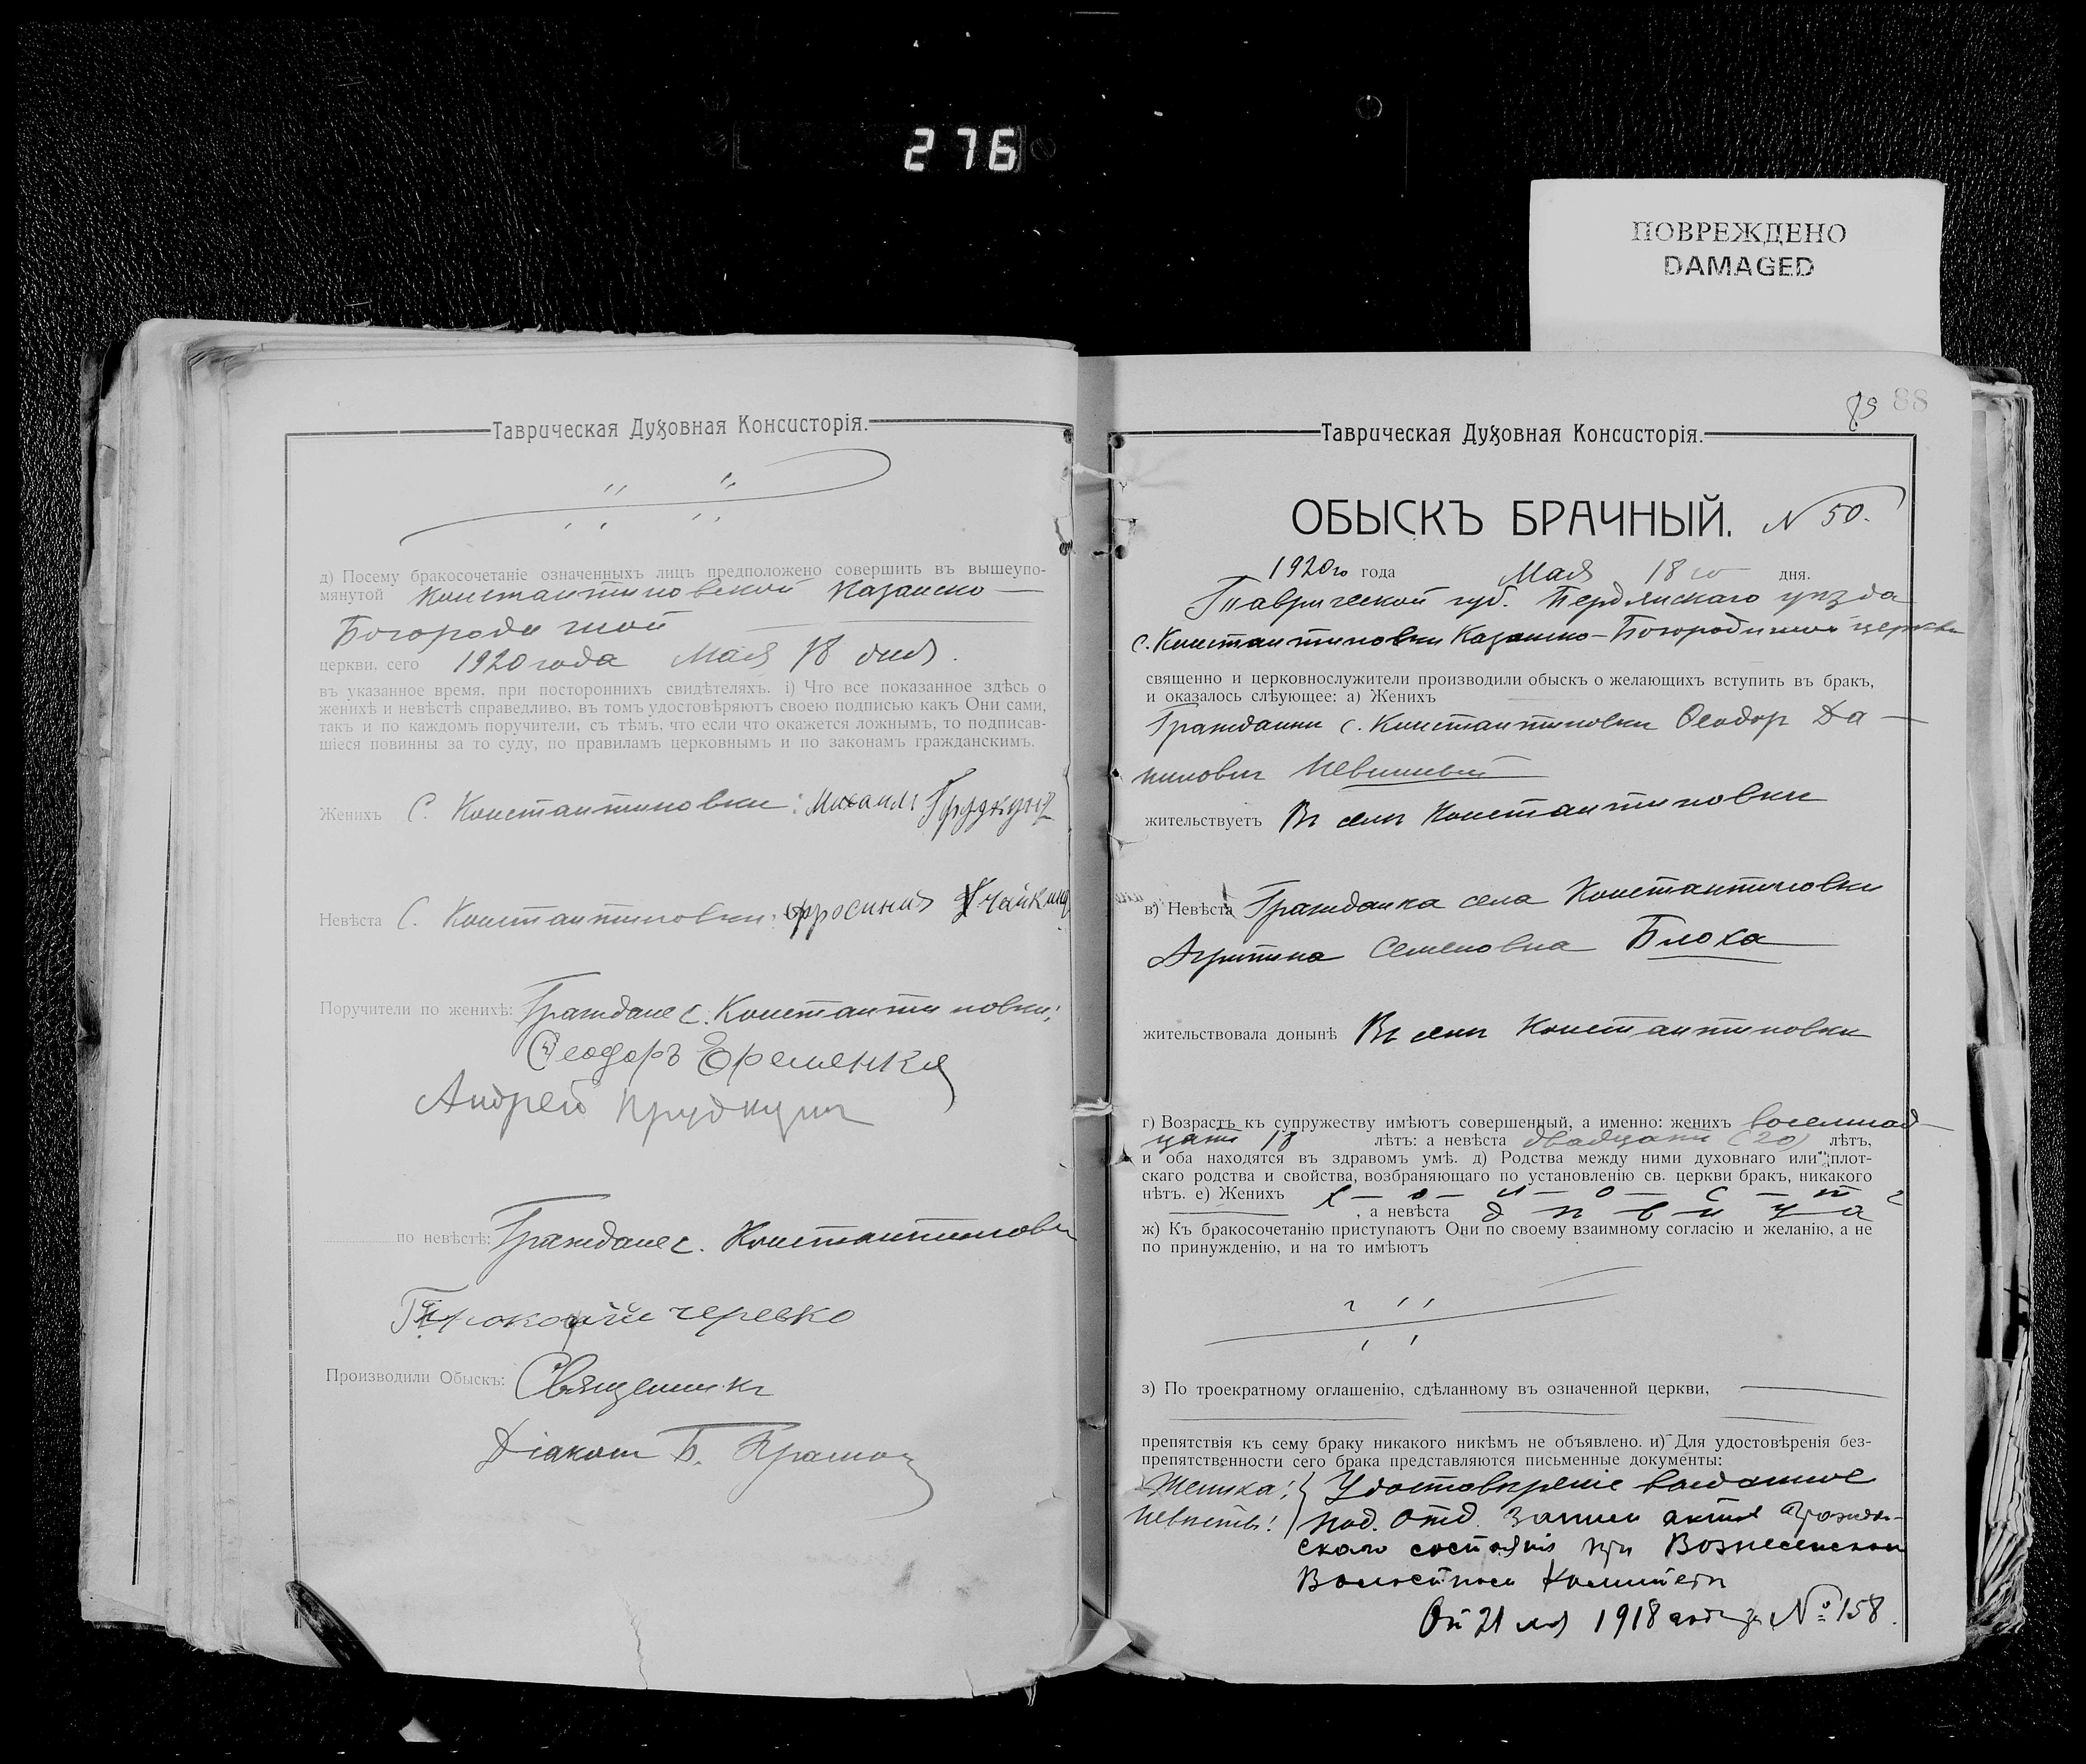 276
ПОВРЕЖДЕНО
DAMAGED
Таврическая Духовная Консисторія.
д) Посему бракосочетаніе означенныхъ лицъ предположено совершить въ вышеупо-
мянутой Константиновской Казанско-
Богородичной
церкви, сего 1920 года Мая 18 дня.
въ указанное время, при постороннихъ свидѣтеляхъ. і) Что все показанное здѣсь о
женихѣ и невѣстѣ справедливо, въ томъ удостовѣряютъ своею подписью какъ Они сами,
такъ и по каждомъ поручители, съ тѣмъ, что если что окажется ложнымъ, то подписав-
шіеся повинны за то суду, по правиламъ церковнымъ и по законамъ гражданскимъ.
Женихъ С. Константиновки: Михаилъ
Невѣста С. Константиновки:
Поручители по женихѣ: Граждане с. Константиновки:
Ѳеодоръ Еременко
Андрей Прудкунъ
по невѣстѣ: Граждане с. Константиновки
Прокофій Черевко
Производили Обыскъ: Священникъ
Діаконъ Б.
89 88
Таврическая Духовная Консисторія.
ОБЫСКЪ БРАЧНЫЙ. N 50.
1920го года Мая 18го дня.
Таврической губ. Бердянскаго уѣзда
с. Константиновки Казанско-Богородичной церкви
священно и церковнослужители производили обыскъ о желающихъ вступить въ бракъ,
и оказалось слѣующее: а) Женихъ
Гражданин с. Константиновки Ѳеодор Да-
нилович
жительствуетъ Въ селѣ Константиновки
в) Невѣста Гражданка села Константиновки
Агрипина Семеновна Блоха
жительствовала донынѣ Въ селѣ Константиновки
г) Возрастъ къ супружеству имѣютъ совершенный, а именно: женихъ восемнад-
цати 18 лѣтъ: а невѣста двадцати (20) лѣтъ,
и оба находятся въ здравомъ умѣ. д) Родства между ними духовнаго или плот-
скаго родства и свойства, возбраняющаго по установленію св. церкви бракъ, никакого
нѣтъ. е) Женихъ х-о-л-о-с-т
, а невѣста д ѣ в и ц а
ж) Къ бракосочетанію приступаютъ Они по своему взаимному согласію и желанію, а не
по принужденію, и на то имѣютъ
з) По троекратному оглашенію, сдѣланному въ означенной церкви,
препятствія къ сему браку никакого никѣмъ не объявлено. и) Для удостовѣренія без-
препятственности сего брака представляются письменные документы:
Жениха: } Удостовѣреніе выданное
Невѣсты: } под. отд. Записи актов Граждан-
скаго состоянія при Вознесенском
Волостном Комитетѣ
От 21 мая 1918 года за № 158.